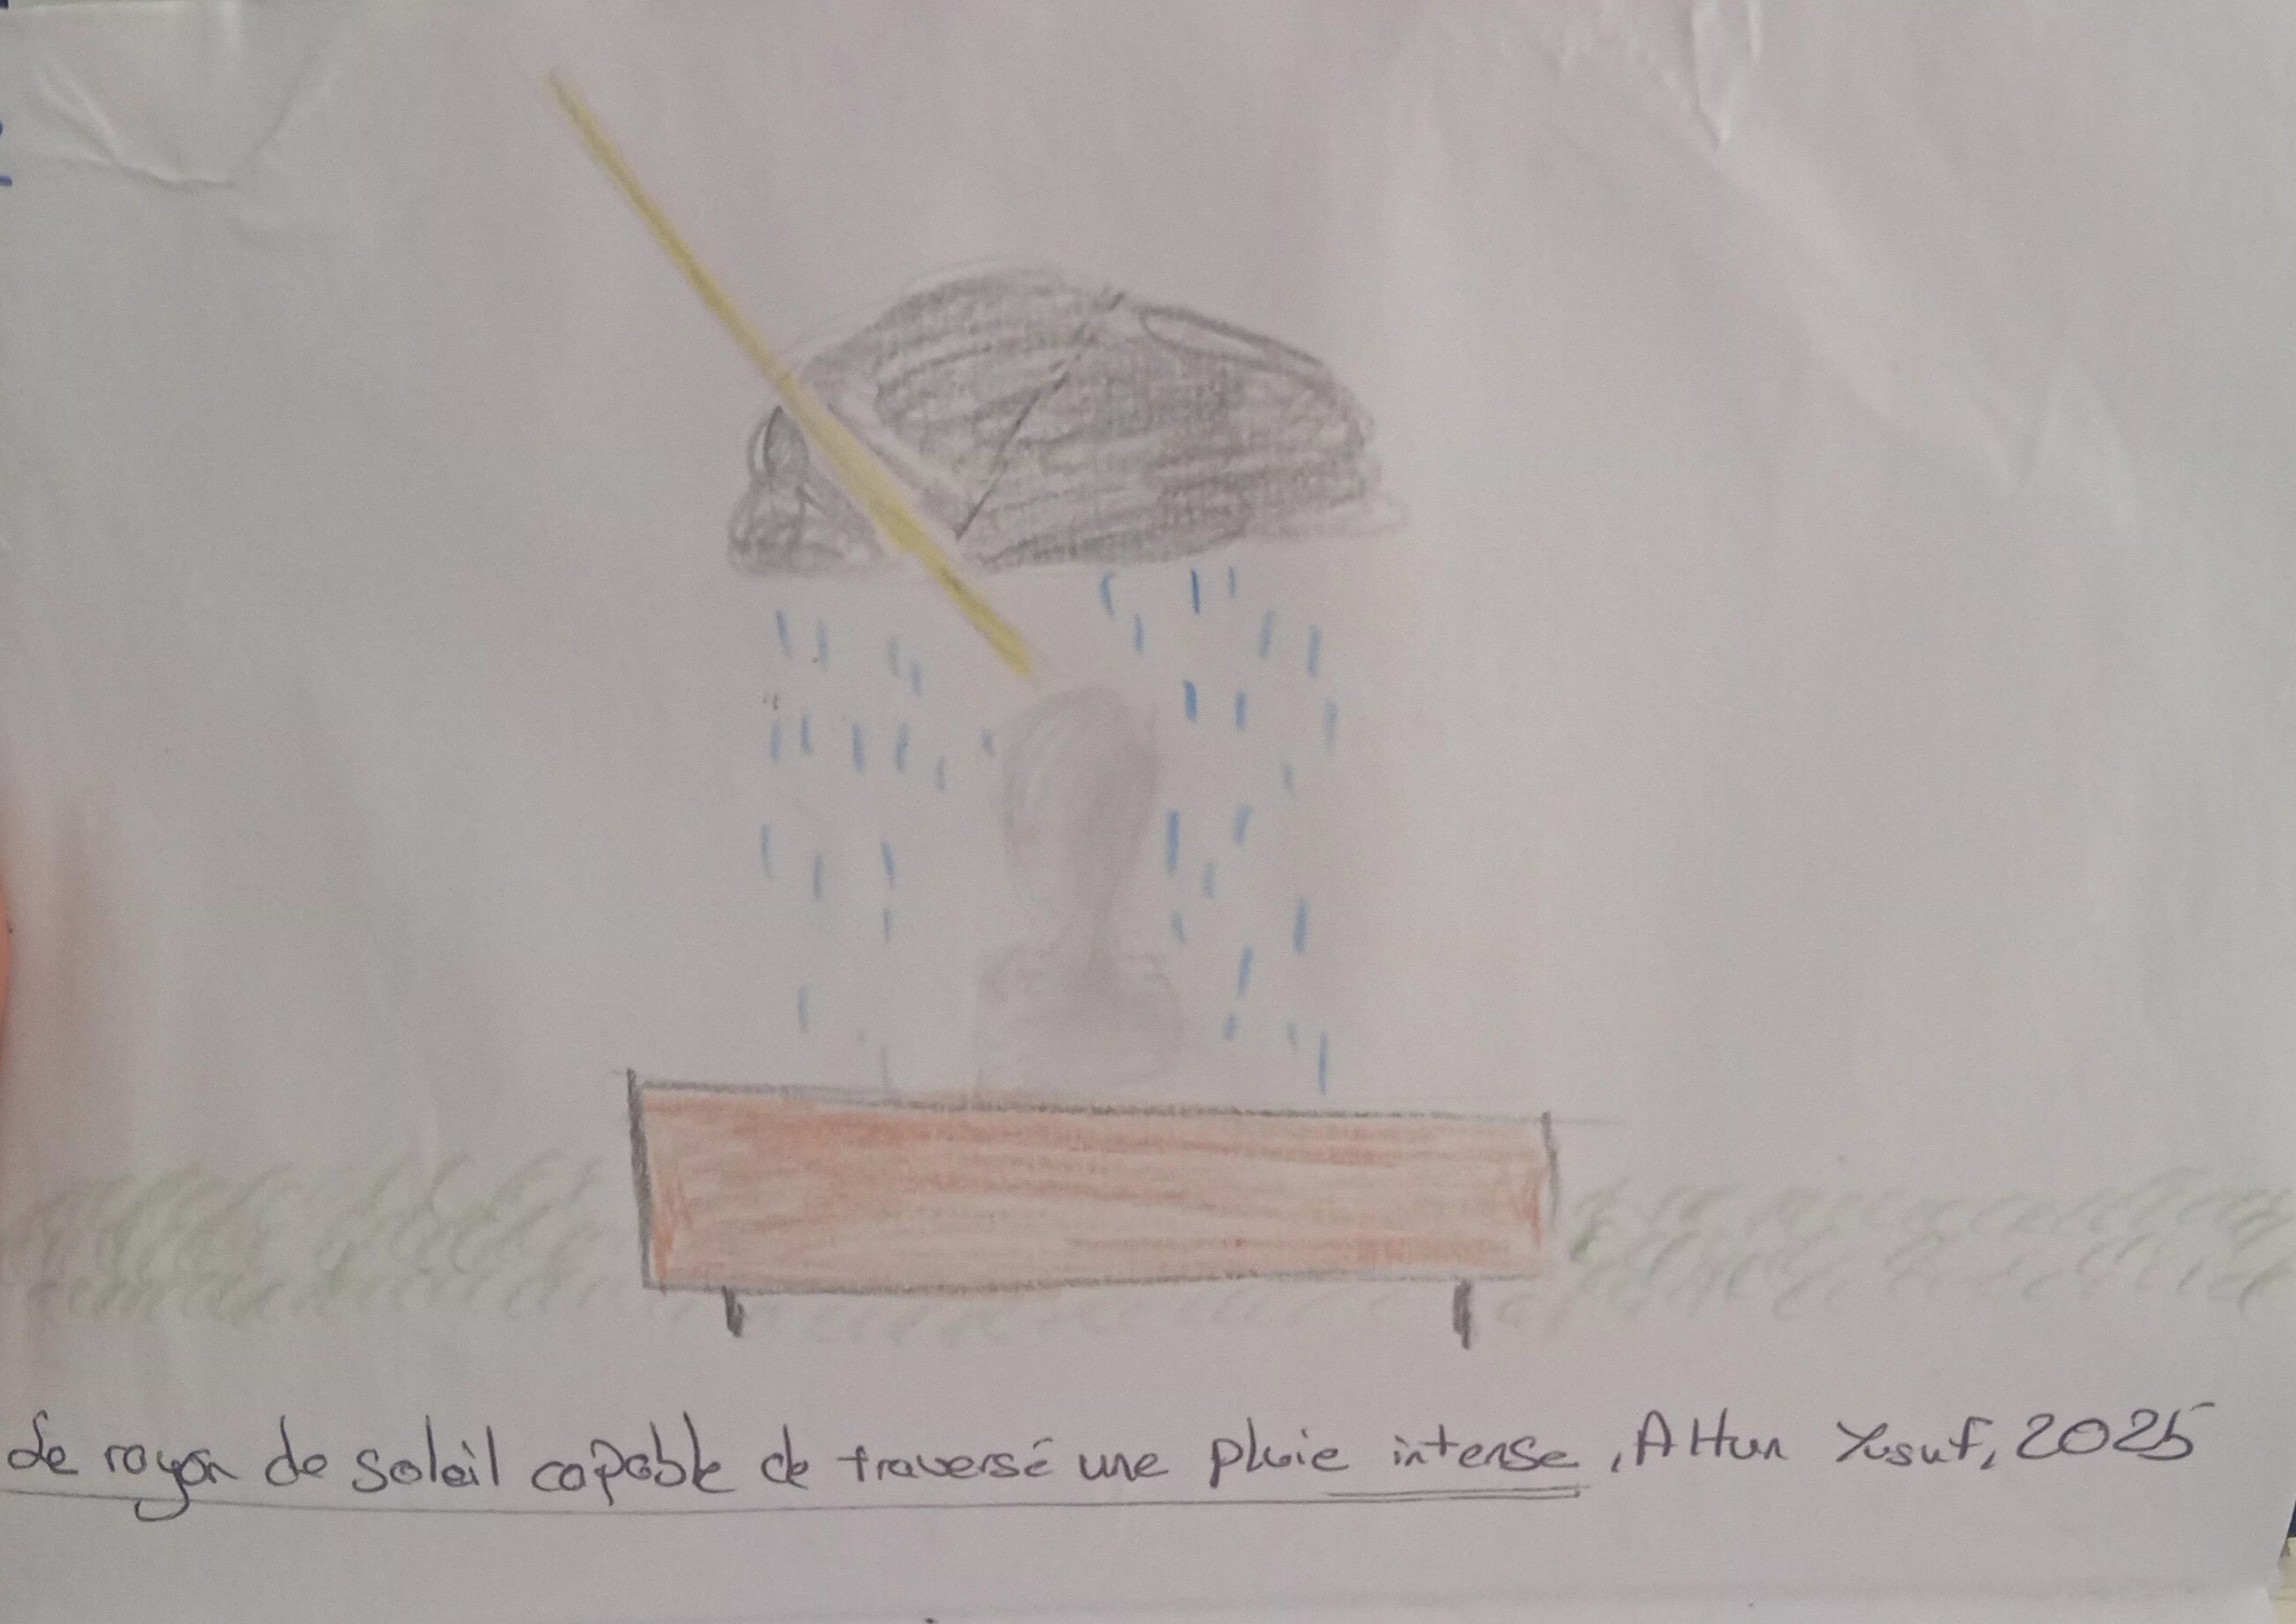 Le rayon de soleil capable de traversé une pluie intense, Altun Yusuf, 2025